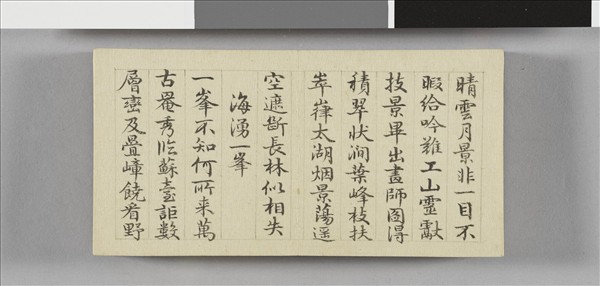 晴雲月景非一目不
暇給吟難工山靈獻
技景畢出畫師圖得
積翠狀澗葉峰枝扶
崒嵂太湖烟景蕩遥
空遮斷長林似相失
海湧一峯
一峯不知何所来萬
古秀臨蘇臺詎數
層巒及疊嶂饒看野